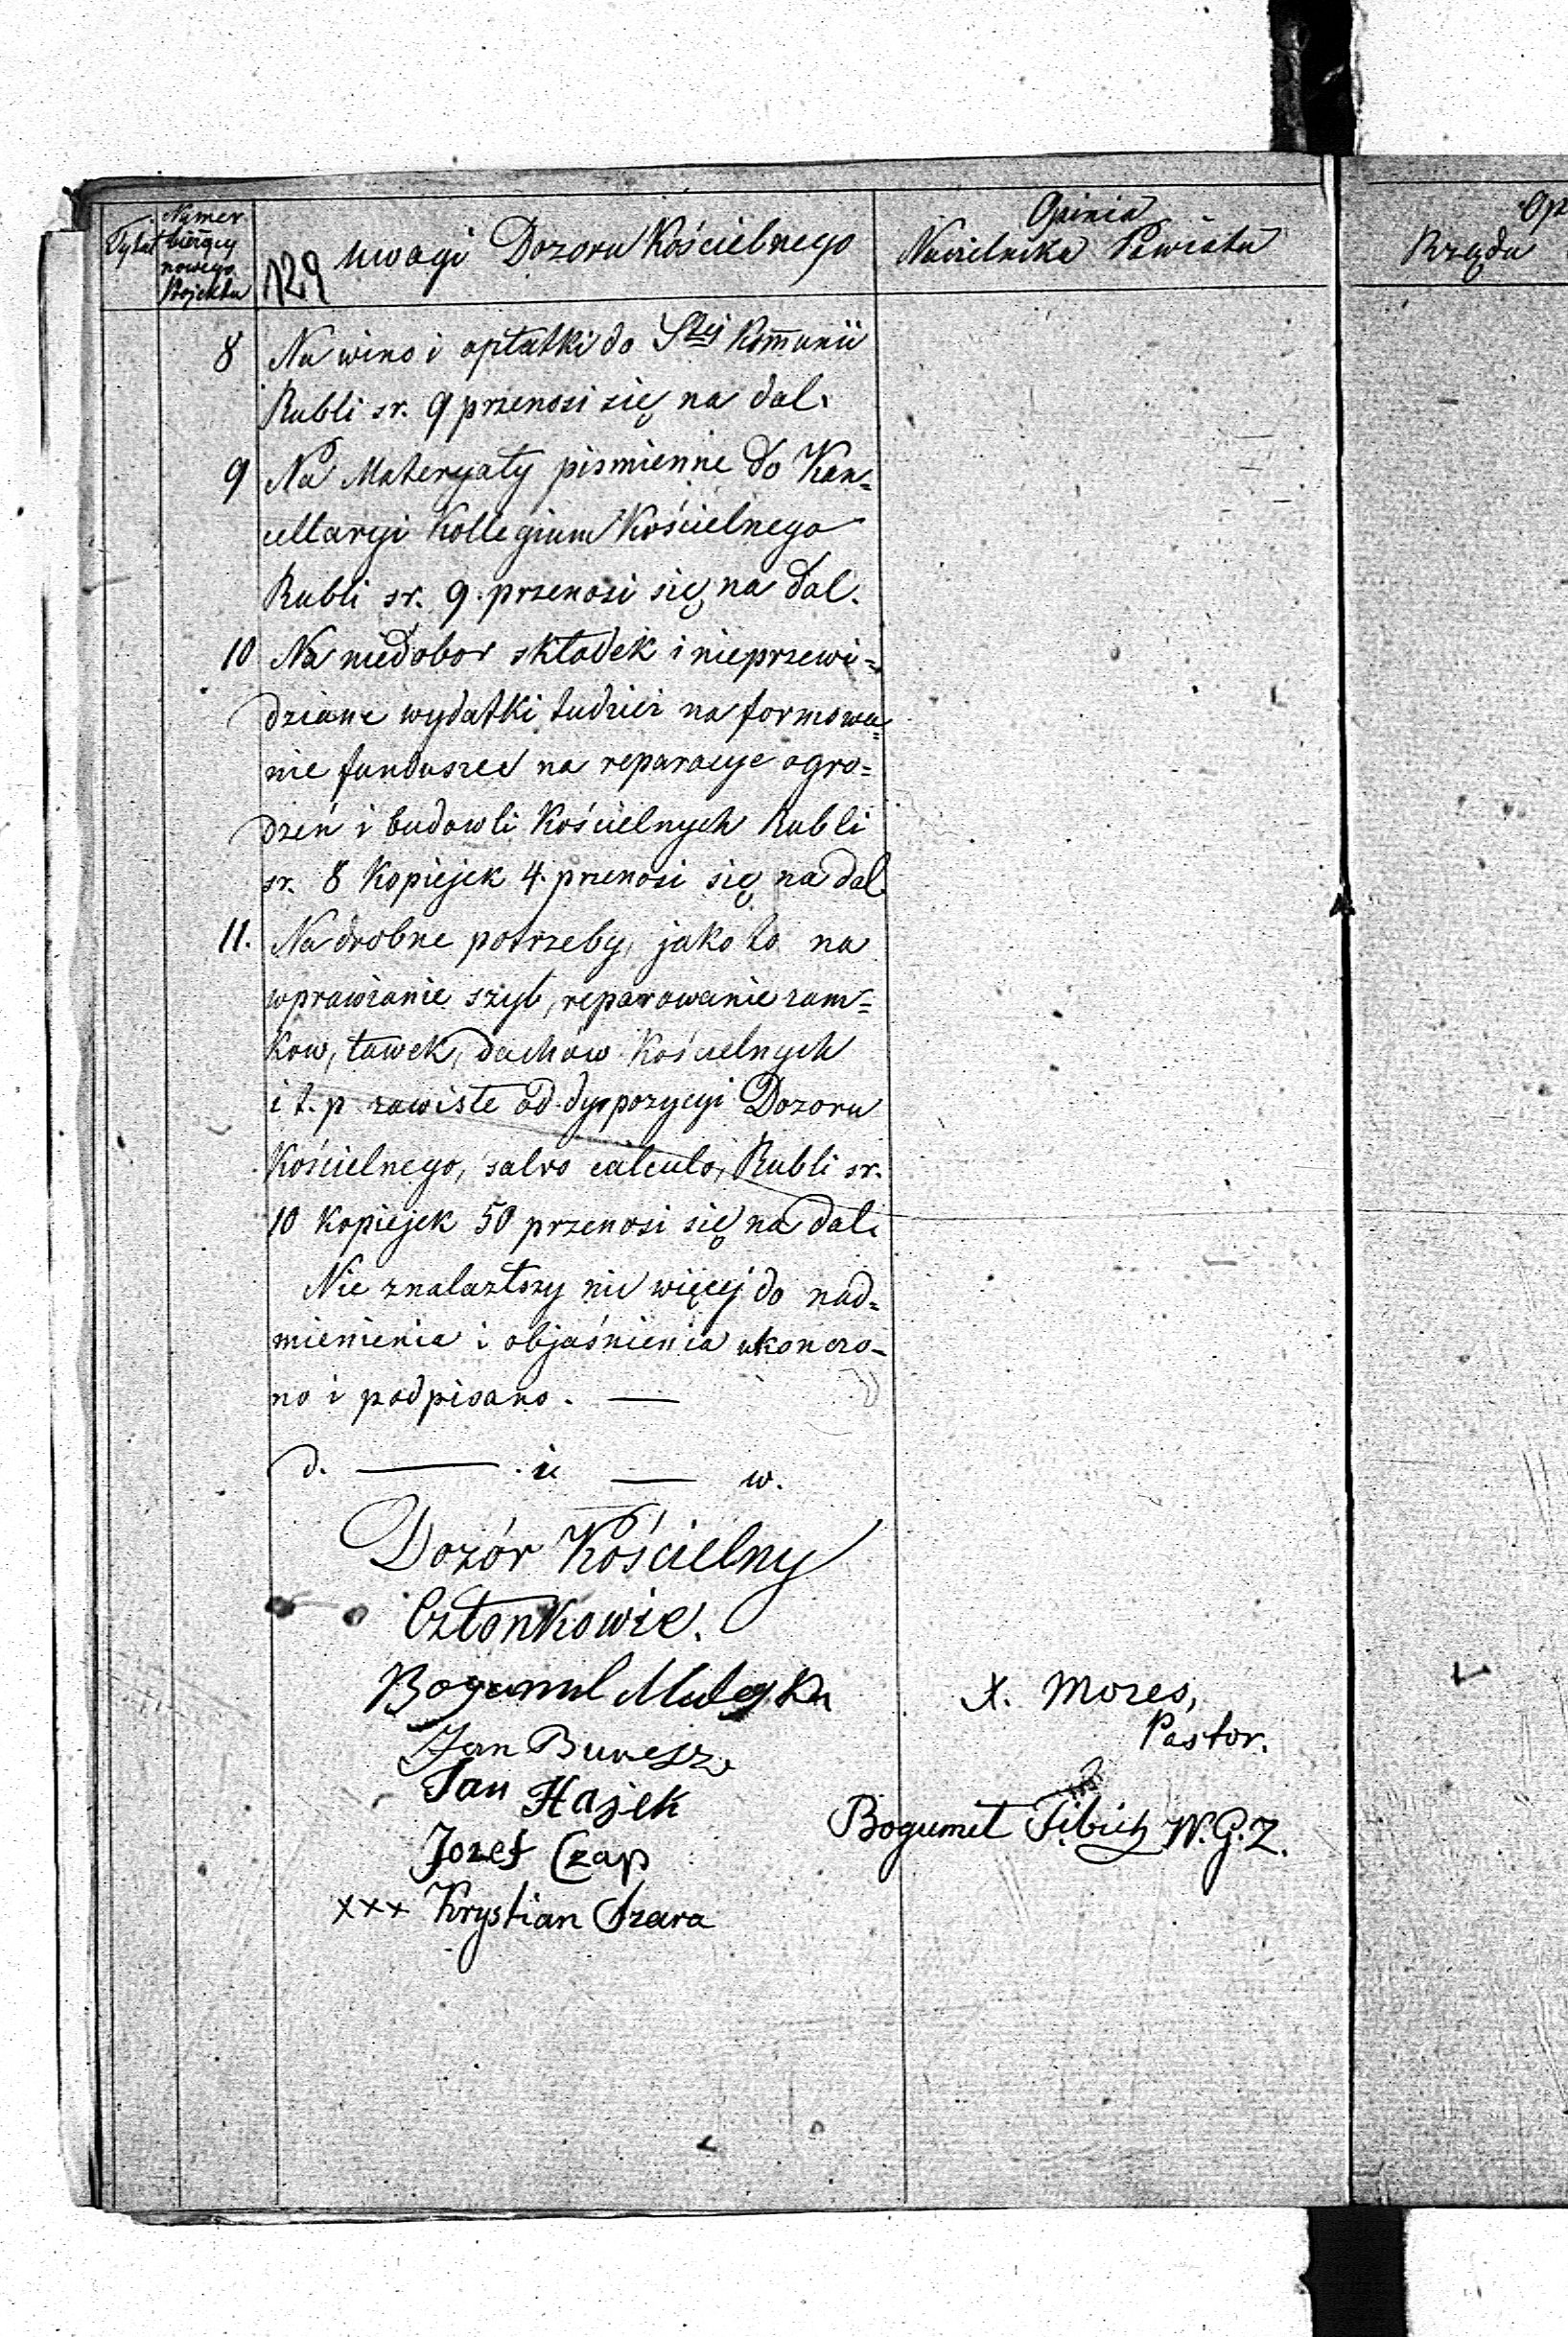 Tytuł
Numer
bieżący
nowego
Projektu
129
uwagi Dozoru Kościelnego
Opinia
Naczelnika Powiatu
Op
Rządu
8 Na wino i opłatki do Stej Kom̄unii
Rubli sr. 9 przenosi się na dal.
9 Na Materyały piśmienne do Kan=
cellaryi Kollegium Kościelnego
Rubli sr. 9. przenosi się na dal.
10 Na niedobor składek i nieprzewi=
dziane wydatki tudzież na formowa=
nie fundusze na reparacye ogro=
dzeń i budowli Kościelnych Rubli
sr. 8 Kopiejek 4. przenosi się na dal
11. Na drobne potrzeby, jako to na
wprawianie szyb, reparowanie zam=
kow, ławek, dachów Kościelnych
i t. p zawisłe od dyspozycyi Dozoru
Kościelnego, salvo calculo, Rubli sr.
10 Kopiejek 50 przenosi się na dal.
Nie znalazłszy nic więcej do nad=
mienienia i objaśnienia ukończo-
no i podpisano. —
d. — w.
Dozór Kościelny
Członkowie.
Bogumil
X. Mozes,
Pastor.
Jan Buresz
Jan Hajek
Bogumił Fibich W. G. Z.
Jozef Czap
xxx Krystian Szara